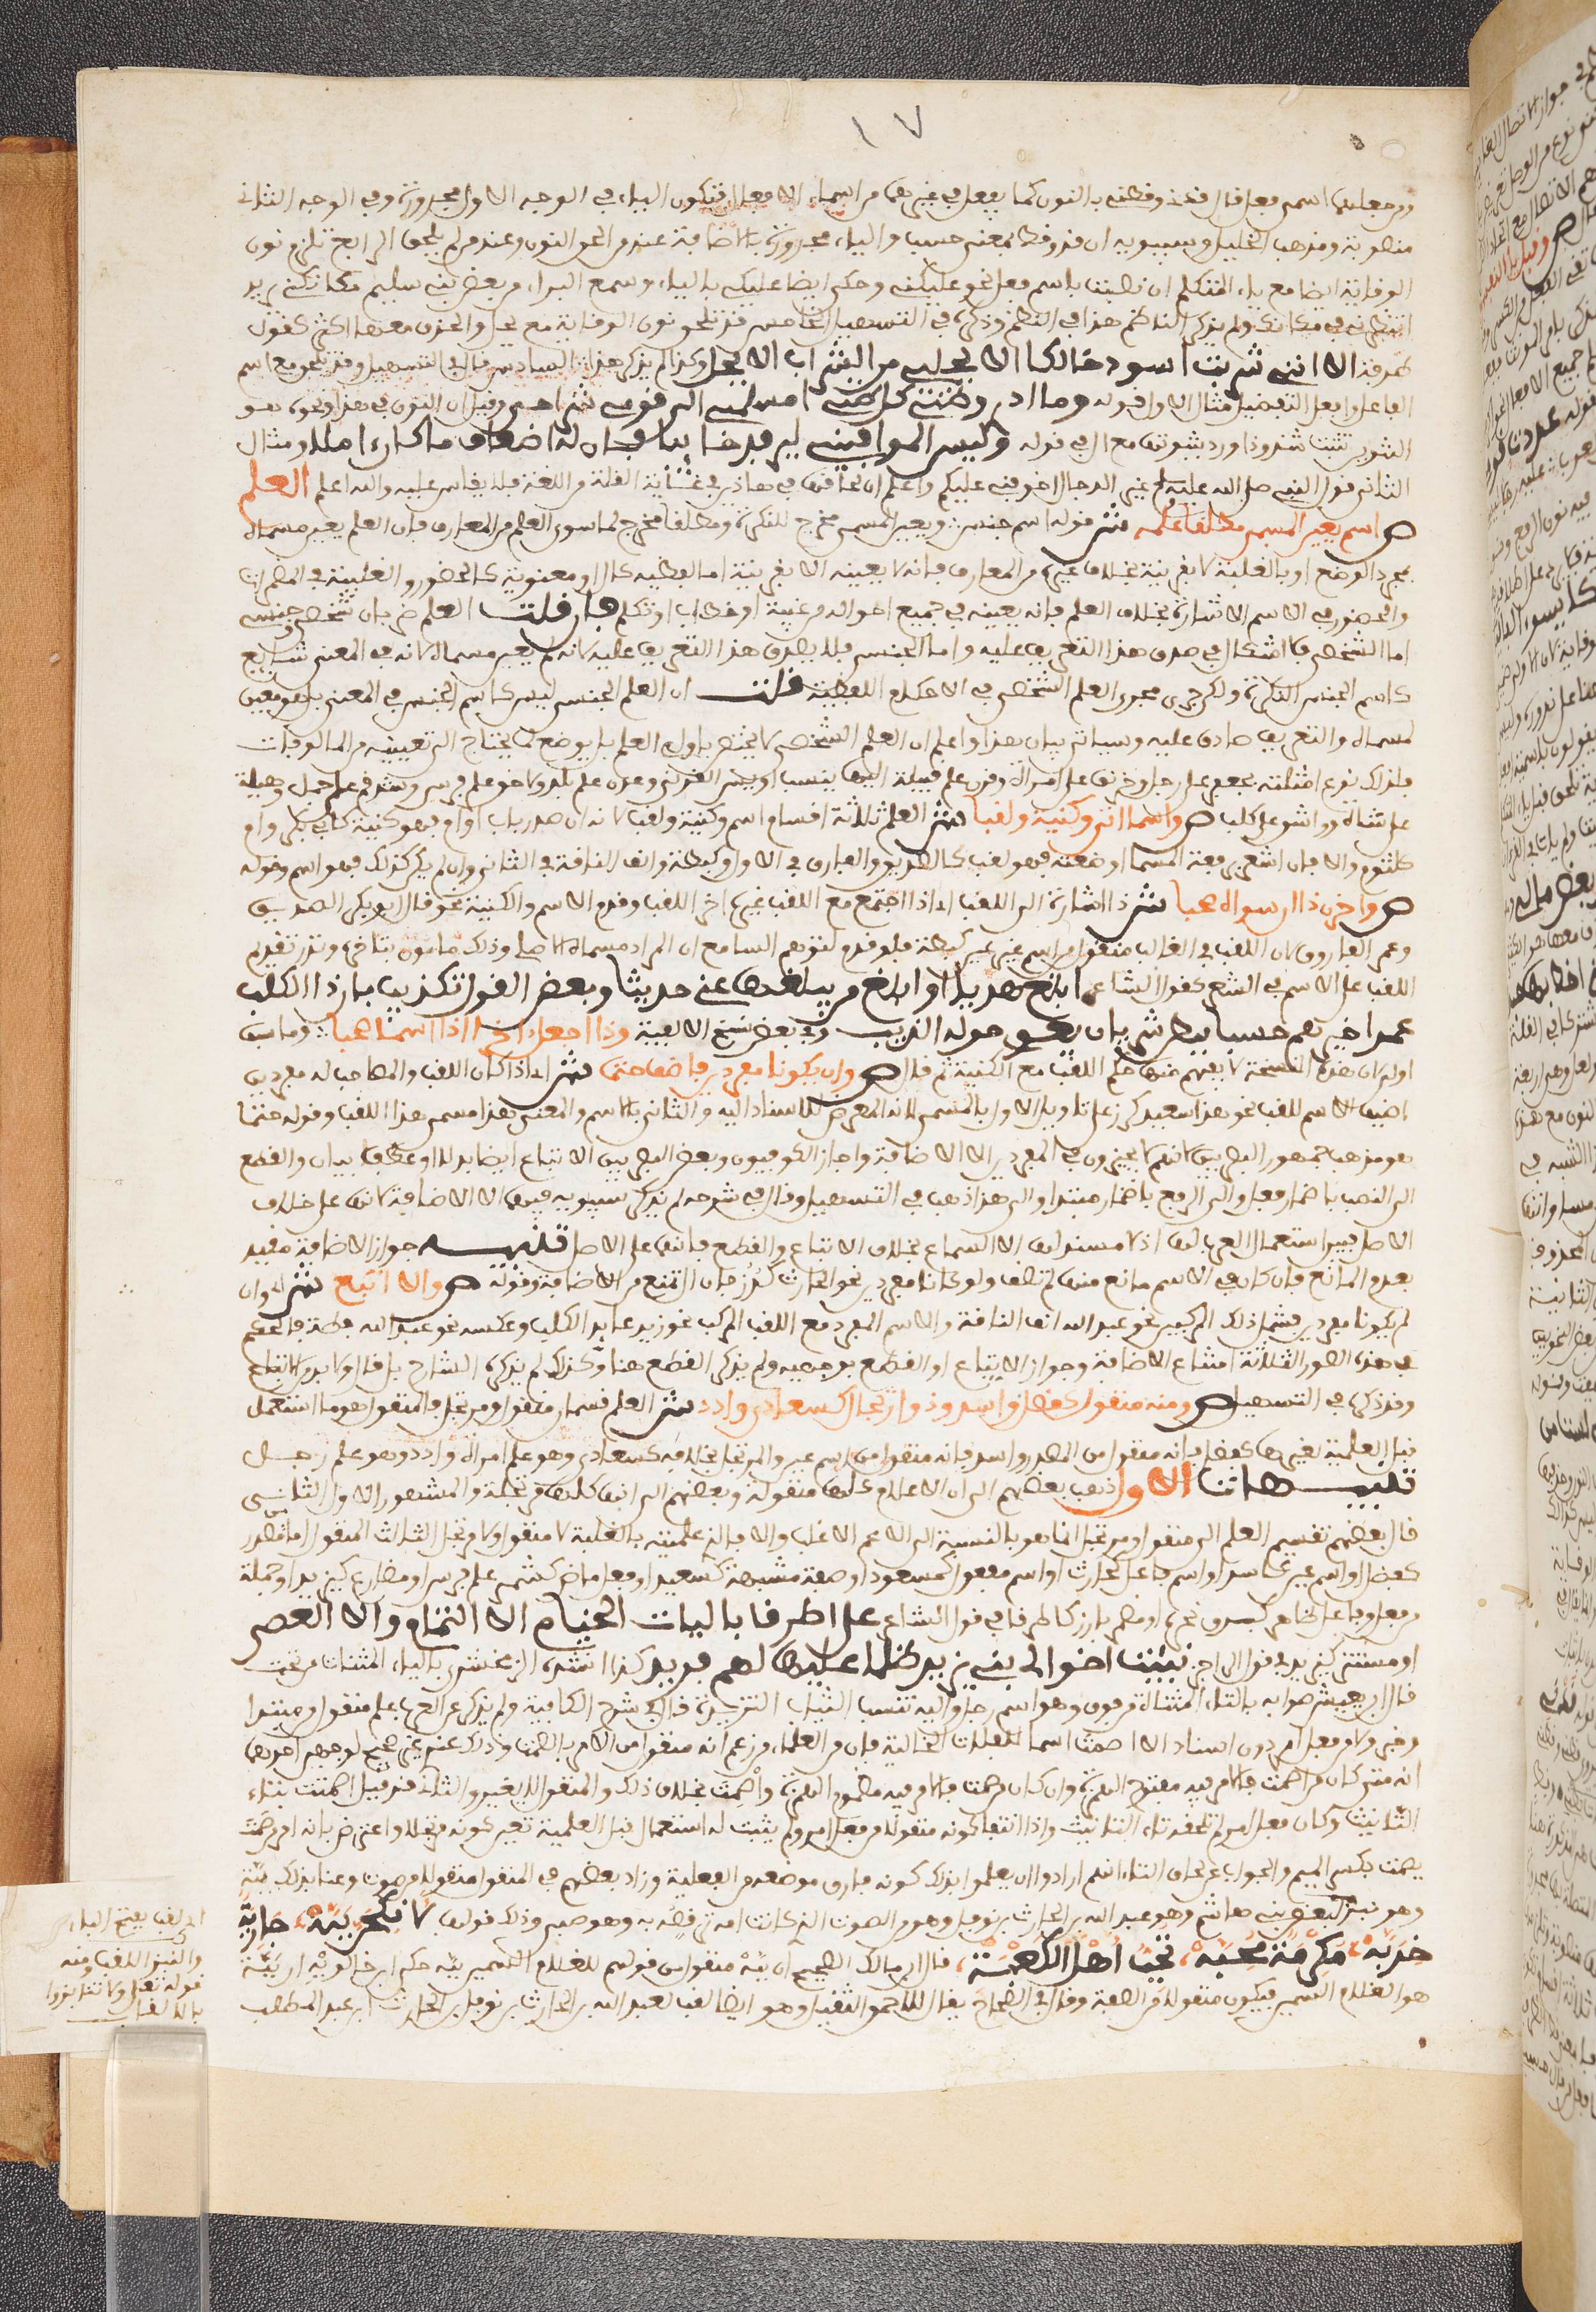 ١٧
ومن جعلهما اسمى فعل قال قدنى وقطنى بالنون كما يفعل في غيرهما من اسماء الافعال فتكون الياء في الوجه الاول مجرورة وفي الوجه الثاني
منصوبة ومذهب الخليل وسيبويه ان قد وقط بمعنى حسب والياء مجرورة بالاضافة عند من الحق النون وعند من لم يلحق الرابع تلزم نون
الوقاية ايضا مع ياء المتكلم ان نصبت باسم فعل نحو عليكنى وحكى ايضا عليكى بالياء وسمع الفراء من بعض بنى سليم مكانكنى يريد
انتظرنى في مكانك ولم يذكر الناظم هذا في النظم وذكره في التسهيل الخامس قد تلحق نون الوقاية مع بجل والحذف معها اكثر كقول
طرفة الا اننى شربت اسود حالكا الا بجلى من الشراب الا بجل وكذا لم يذكر هذا السادس قال في التسهيل وقد تلحق مع اسم
الفاعل وافعل التفضيل مثال الاول قوله وما ادرى وظنى كل ظنى امسلمنى الى قومى شراحى وقيل ان النون في هذا ونحوه هو
التنوين تثبت شذوذا ورد بثبوتها مع ال في قوله وليس الموافينى ليرفد خائبا فان له اضعاف ما كان املا ومثال
الثاني قول النبي صلى الله عليه وسلم غير الدجال اخوفنى عليكم واعلم ان لحاقها في هاذين في غاية القلة من اللغة فلا يقاس عليه والله اعلم العلم
ص اسم يعين المسمى مطلقا علمه ش قوله اسم جنس ويعين المسمى مخرج للنكرة ومطلقا مخرج لما سوى العلم من المعارف فان العلم يعين مسماه
بمجرد الوضع او بالغلبة لا بقرينة بخلاف غيره من المعارف فانه لا يعينه الا بقرينة اما لفظية كال او معنوية كالحضور والغيبة في المضمرات
والحضور في الاسم الاشارة بخلاف العلم فانه يعينه في جميع احواله من غيبة او خطاب او تكلم فان قلت العلم ضربان شخصى وجنسى
اما الشخصى فلا اشكال في صدق هذا التعريف عليه واما الجنسى فلا يصدق هذا التعريف عليه لانه لم يعين مسماه لانه في المعنى شائع
كاسم الجنس النكرة ولكن جرى مجرى العلم الشخصى في الاحكام اللفظية قلت ان العلم الجنسى ليس كاسم الجنس في المعنى بل هو معين
لمسماه والتعريف صادق عليه وسياتى بيان هذا واعلم ان العلم الشخصى لا يختص باولى العلم بل يوضع لما يحتاج الى تعيينه من المالوفات
فلذلك نوع امثلته بجعفر علم رجل وخرنق علم امراة وقرن علم قبيلة اليها ينسب اويس القرنى وعدن علم بلد ولاحق علم فرس وشذقم علم جمل وهيلة
علم شاة وواشق علم كلب ص واسما اتى وكنية ولقبا ش العلم ثلاثة اقسام اسم وكنية ولقب لانه ان صدر باب او ام فهو كنية كابى بكر وام
كلثوم والا فان اشعر برفعة المسما او ضعته فهو لقب كالصديق والفاروق في الاول وكبطة وانف الناقة في الثاني وان لم يكن كذلك فهو اسم وقوله
ص واخرن ذا ان سواه صحبا ش ذا اشارة الى اللقب اى اذا اجتمع مع اللقب غيره اخر اللقب وقدم الاسم والكنية نحو قال ابو بكر الصديق
وعمر الفاروق لان اللقب في الغالب منقول من اسم غير انسان كبطة فلو قدم لتوهم السامع ان المراد مسماه الاصلى وذلك مامون بتاخيره وندر تقديم
اللقب على الاسم في الشعر كقول الشاعر ابلغ هذيلا وابلغ من يبلغها عنى حديثا وبعض القول تكذيب بان ذا الكلب
عمرا خيرهم حسبا ببطن شريان يعوى حوله الذيب وفي بعض نسخ الالفية وذا اجعل اخرا اذا اسما صحبا وما سبق
اولى لان هذه النسخة لا يفهم منها حكم اللقب مع الكنية ثم قال ص وان يكونا مفردين فاضف حتما ش اى اذا كان اللقب والمصاحب له مفردين
اضيف الاسم للقب نحو هذا سعيد كرز على تاويل الاول بالمسمى لانه المعرض للاسناد اليه والثاني بالاسم والمعنى هذا مسمى هذا اللقب وقوله حتما
هو مذهب جمهور البصريين لانهم لا يجيزون في المفردين الا الاضافة واجاز الكوفيون وبعض البصريين الاتباع ايضا بدلا او عطف بيان والقطع
الى النصب باضمار فعل والى الرفع باضمار مبتدا والى هذا ذهب في التسهيل وقال في شرحه لم يذكر سيبويه فيهما الا الاضافة لانها على خلاف
الاصل فبين استعمال العرب لها اذ لا مستند لها الا السماع بخلاف الاتباع والقطع فانهما على الاصل تنبيه جواز الاضافة مقيد
بعدم المانع فان كان في الاسم مانع منها لم تضف ولو كانا مفردين نحو الحارث كرز فان ال تمنع من الاضافة وقوله ص والا اتبع ش اى وان
لم يكونا مفردين فشمل ذلك المركبين نحو عبد الله انف الناقة والاسم المفرد مع اللقب المركب نحو زيد عائد الكلب وعكسه نحو عبد الله بطة فالحكم
في هذه الصور الثلاثة امتناع الاضافة وجواز الاتباع او القطع بوجهيه ولم يذكر القطع هنا وكذلك لم يذكره الشارح بل قال ولا بد من الاتباع
وقد ذكره في التسهيل ص ومنه منقول كفضل واسد وذو ارتجال كسعاد وادد ش العلم قسمان منقول ومرتجل فالمنقول هو ما استعمل
قبل العلمية لغيرها كفضل فانه منقول من المصدر واسد فانه منقول من اسم عين والمرتجل بخلافه كسعاد وهو علم امراة وادد وهو علم رجل
تنبيهات الاول ذهب بعضهم الى ان الاعلام كلها منقولة وبعضهم الى انها كلها مرتجلة والمشهور الاول الثاني
قال بعضهم تقسيم العلم الى منقول ومرتجل انما هو بالنسبة الى الاعم الاغلب والا فالذى علميته بالغلبة لا منقول ولا مرتجل الثالث المنقول اما من مصدر
كفضل او اسم عين كاسد او اسم فاعل كحارث او اسم مفعول كمسعود او صفة مشبهة كسعيد او فعل ماض كشمر علم فرس او مضارع كيزيد او جملة
من فعل وفاعل ظاهر كبرق نحره او مضمر بارز كاطرقا في قول الشاعر على اطرقا باليات الخيام الا الثمام والا العصي
او مستتر كيزيد في قول الراجز نبئت اخوالى بنى يزيد ظلما علينا لهم فديد كذا انشده الزمخشرى بالياء المثناة من تحت
قال ابن يعيش صوابه بالتاء المثناة من فوق وهو اسم رجل واليه تنسب الثياب التزيدية قال في شرح الكافية ولم يذكر عن العرب علم منقول من مبتدا
وخبر ولا من فعل امر دون اسناد الا اصمت اسما للفلاة الخالية فان من العلماء من زعم انه منقول من الامر بالصمت وذلك عندى غير صحيح لوجهين احدهما
انه متى كان من اصمت فالامر فيه مفتوح الهمزة وان كان من صمت فالامر فيه مضموم الهمزة واصمت بخلاف ذلك والمنقول لا يغير والثاني انه قد قيل اصمتة بتاء
التانيث وكان فعل امر لم تلحقه تاء التانيث واذا انتفا كونه منقولا من فعل امر ولم يثبت له استعمال قبل العلمية تعين كونه مرتجلا واعترض بانه امر من صمت
يصمت بكسر الميم والجواب عن لحاق التاء انهم ارادوا ان يعلموا بذلك كونه فارق موضعه من الفعلية وزاد بعضهم في المنقول منقولا من صوت وعنا بذلك ببّة
وهو نبز لبعض بنى هاشم وهو عبد الله بن الحارث بن نوفل وهو من الصوت الذى كانت امه ترقصه به وهو صبى وذلك قولها لانكحن ببّة جارية
خدبّة مكرمة محبّة تجب اهل الكعبة قال ابن مالك الصحيح ان ببّة منقول من قولهم للغلام السمين ببّة حكى ابن خالويه ان ببّة
هو الغلام السمين فيكون منقولا من الصفة وقال في الصحاح يقال للاحمق الثقيل وهو ايضا لقب لعبد الله بن الحارث بن نوفل بن الحارث بن عبد المطلب
اى لقب بفتح الباء
والنبز اللقب ومنه
قوله تعلى ولا تنابزوا
بالالقاب